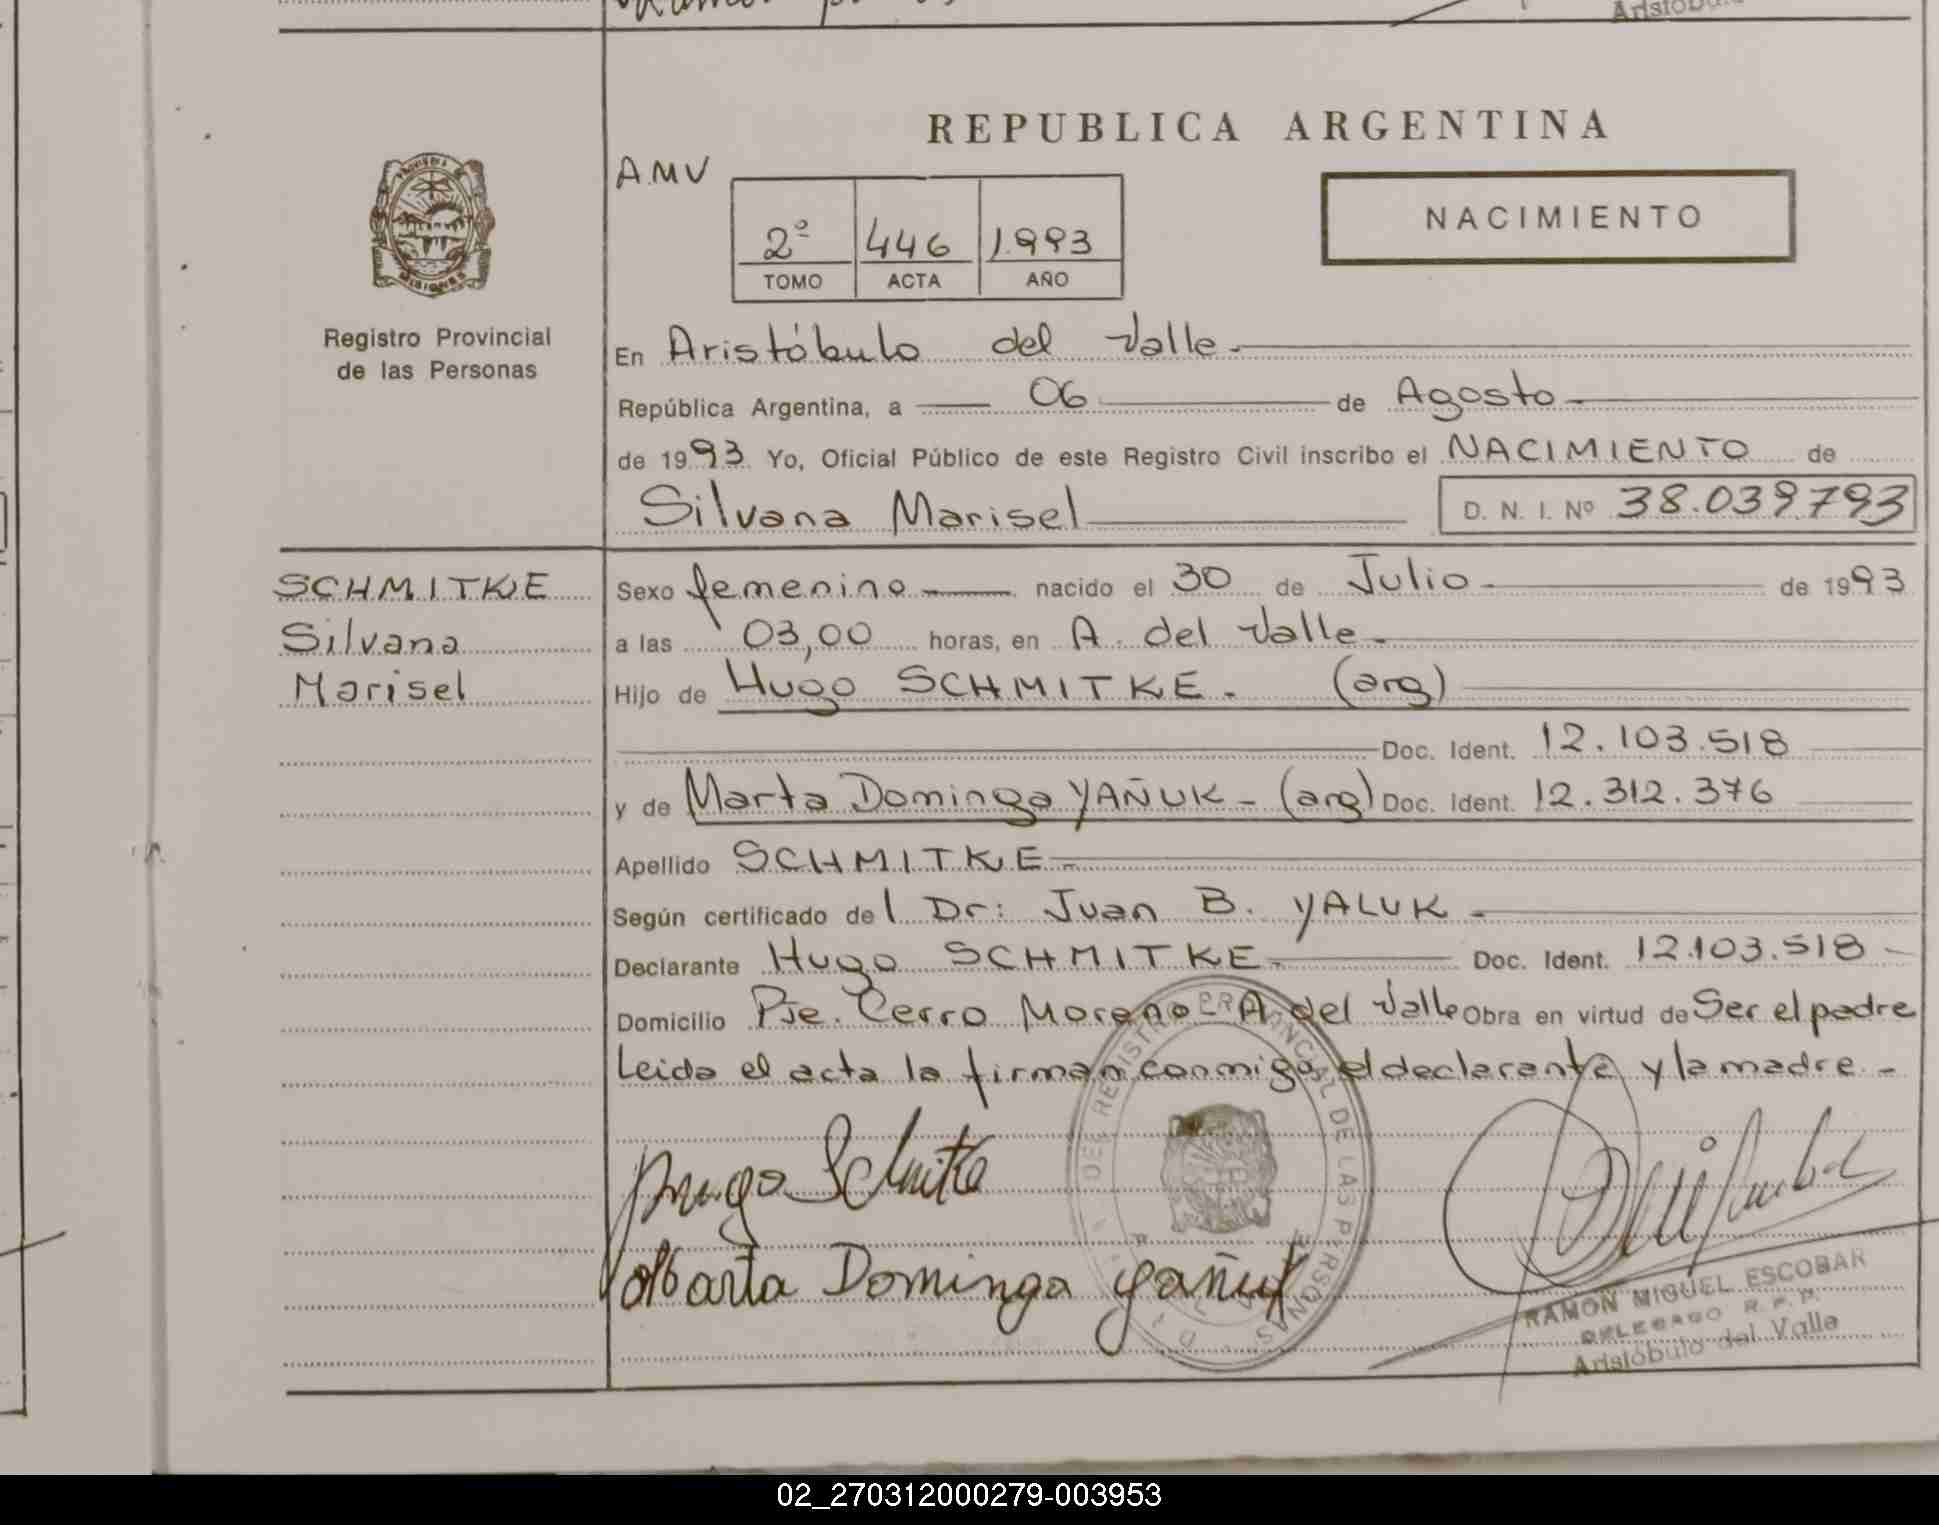 REPUBLICA ARGENTINA
A.M.V
NACIMIENTO
2º 446 1.993
TOMO ACTA AÑO
PROVINCIA
MISIONES
Registro Provincial
de las Personas
En Aristóbulo del Valle.
República Argentina, a 06 de Agosto
de 1993 Yo, Oficial Público de este Registro Civil inscribo el NACIMIENTO de
Silvana Marisel D. N. I. Nº 38.039793
SCHMITKE
Silvana
Marisel
Sexo femenino nacido el 30 de Julio de 1993
a las 03,00 horas, en A. del Valle.
Hijo de Hugo SCHMITKE. (arg)
Doc. Ident. 12.103.518
y de Marta Dominga YAÑUK - (arg) Doc. Ident. 12.312.376
Apellido SCHMITKE.
Según certificado del Dr: Juan B. YALUK -
Declarante Hugo SCHMITKE. Doc. Ident. 12.103.518
Domicilio Pje. Cerro Moreno A del Valle Obra en virtud de Ser el padre
Leida el acta la firman conmigo el declarante y la madre. -
Hugo Schmitke
Marta Dominga Yañuk
REGISTRO PROVINCIAL DE LAS PERSONAS
RAMON MIGUEL ESCOBAR
DELEGADO R.P.P.
Aristóbulo del Valle
02_270312000279-003953